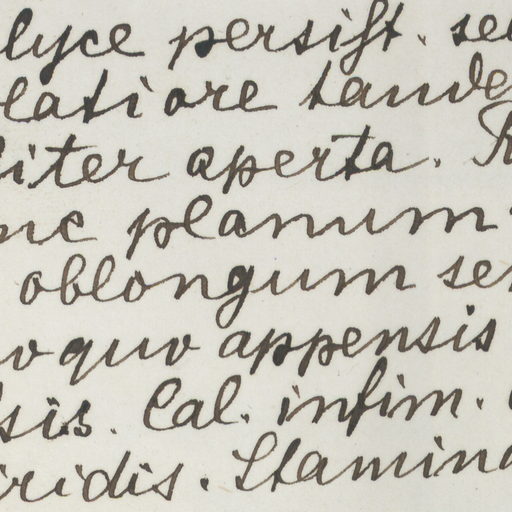 lyce persist. se
latiore tande
iter aperta. R
nc planum
oblongum se
quo appensis
sis. Cal. infim.
iridis. Stamina